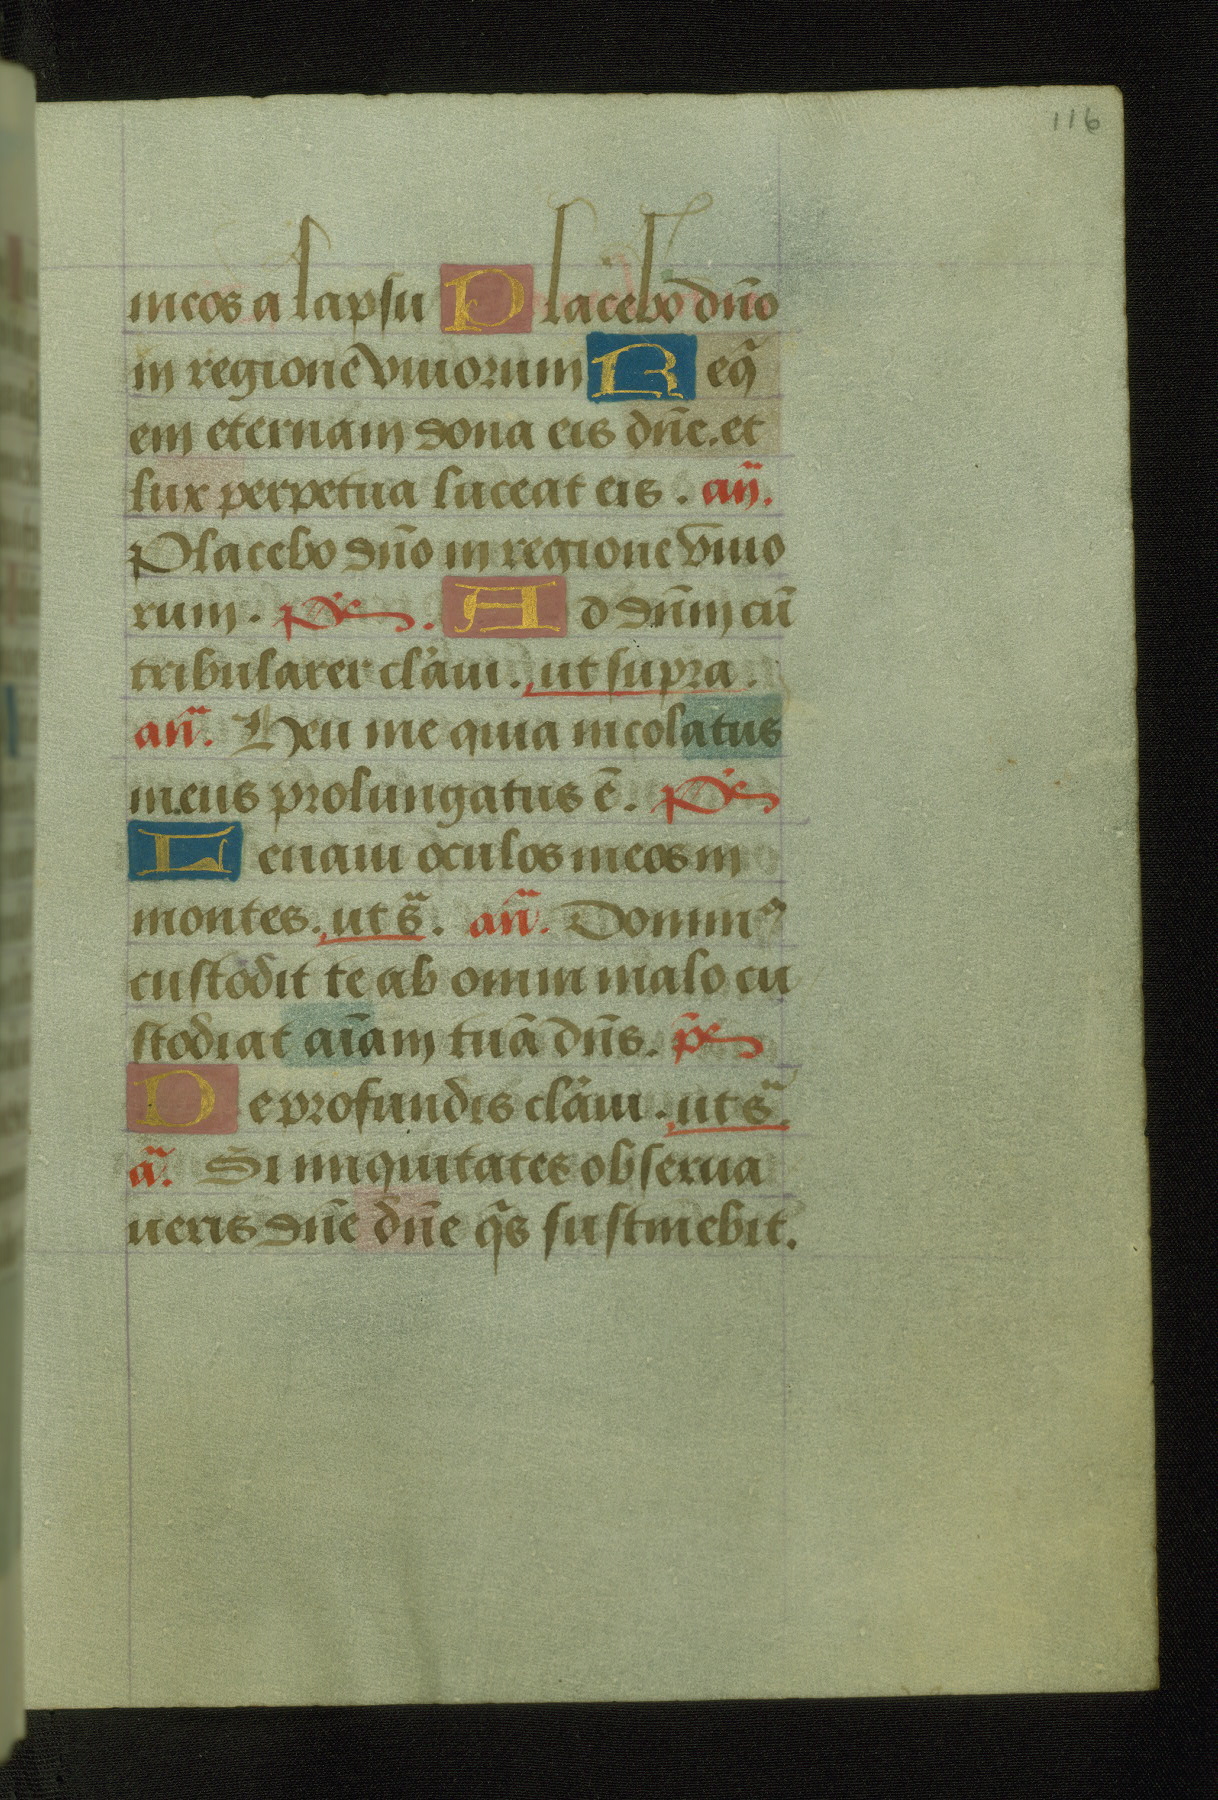 116
meos a lapsu Placebo dn̄o
in regione viuorum Req̄
em eternam dona eis dn̄e. et
lux perpetua luceat eis. an̄.
Placebo dn̄o in regione viuo
rum. Ps. Ad dn̄m cū
tribularer clāui. ut supra.
an̄. Heu me quia incolatus
meus prolungatus ē. Ps
Leuaui oculos meos in
montes. ut s̄. an̄. Dominꝰ
custodit te ab omni malo cu
stodiat aīam tuā dn̄s. ps̄
De profundis clāui. ut s̄.
ā. Si iniquitates obserua
ueris dn̄e dn̄e q̄s sustinebit.